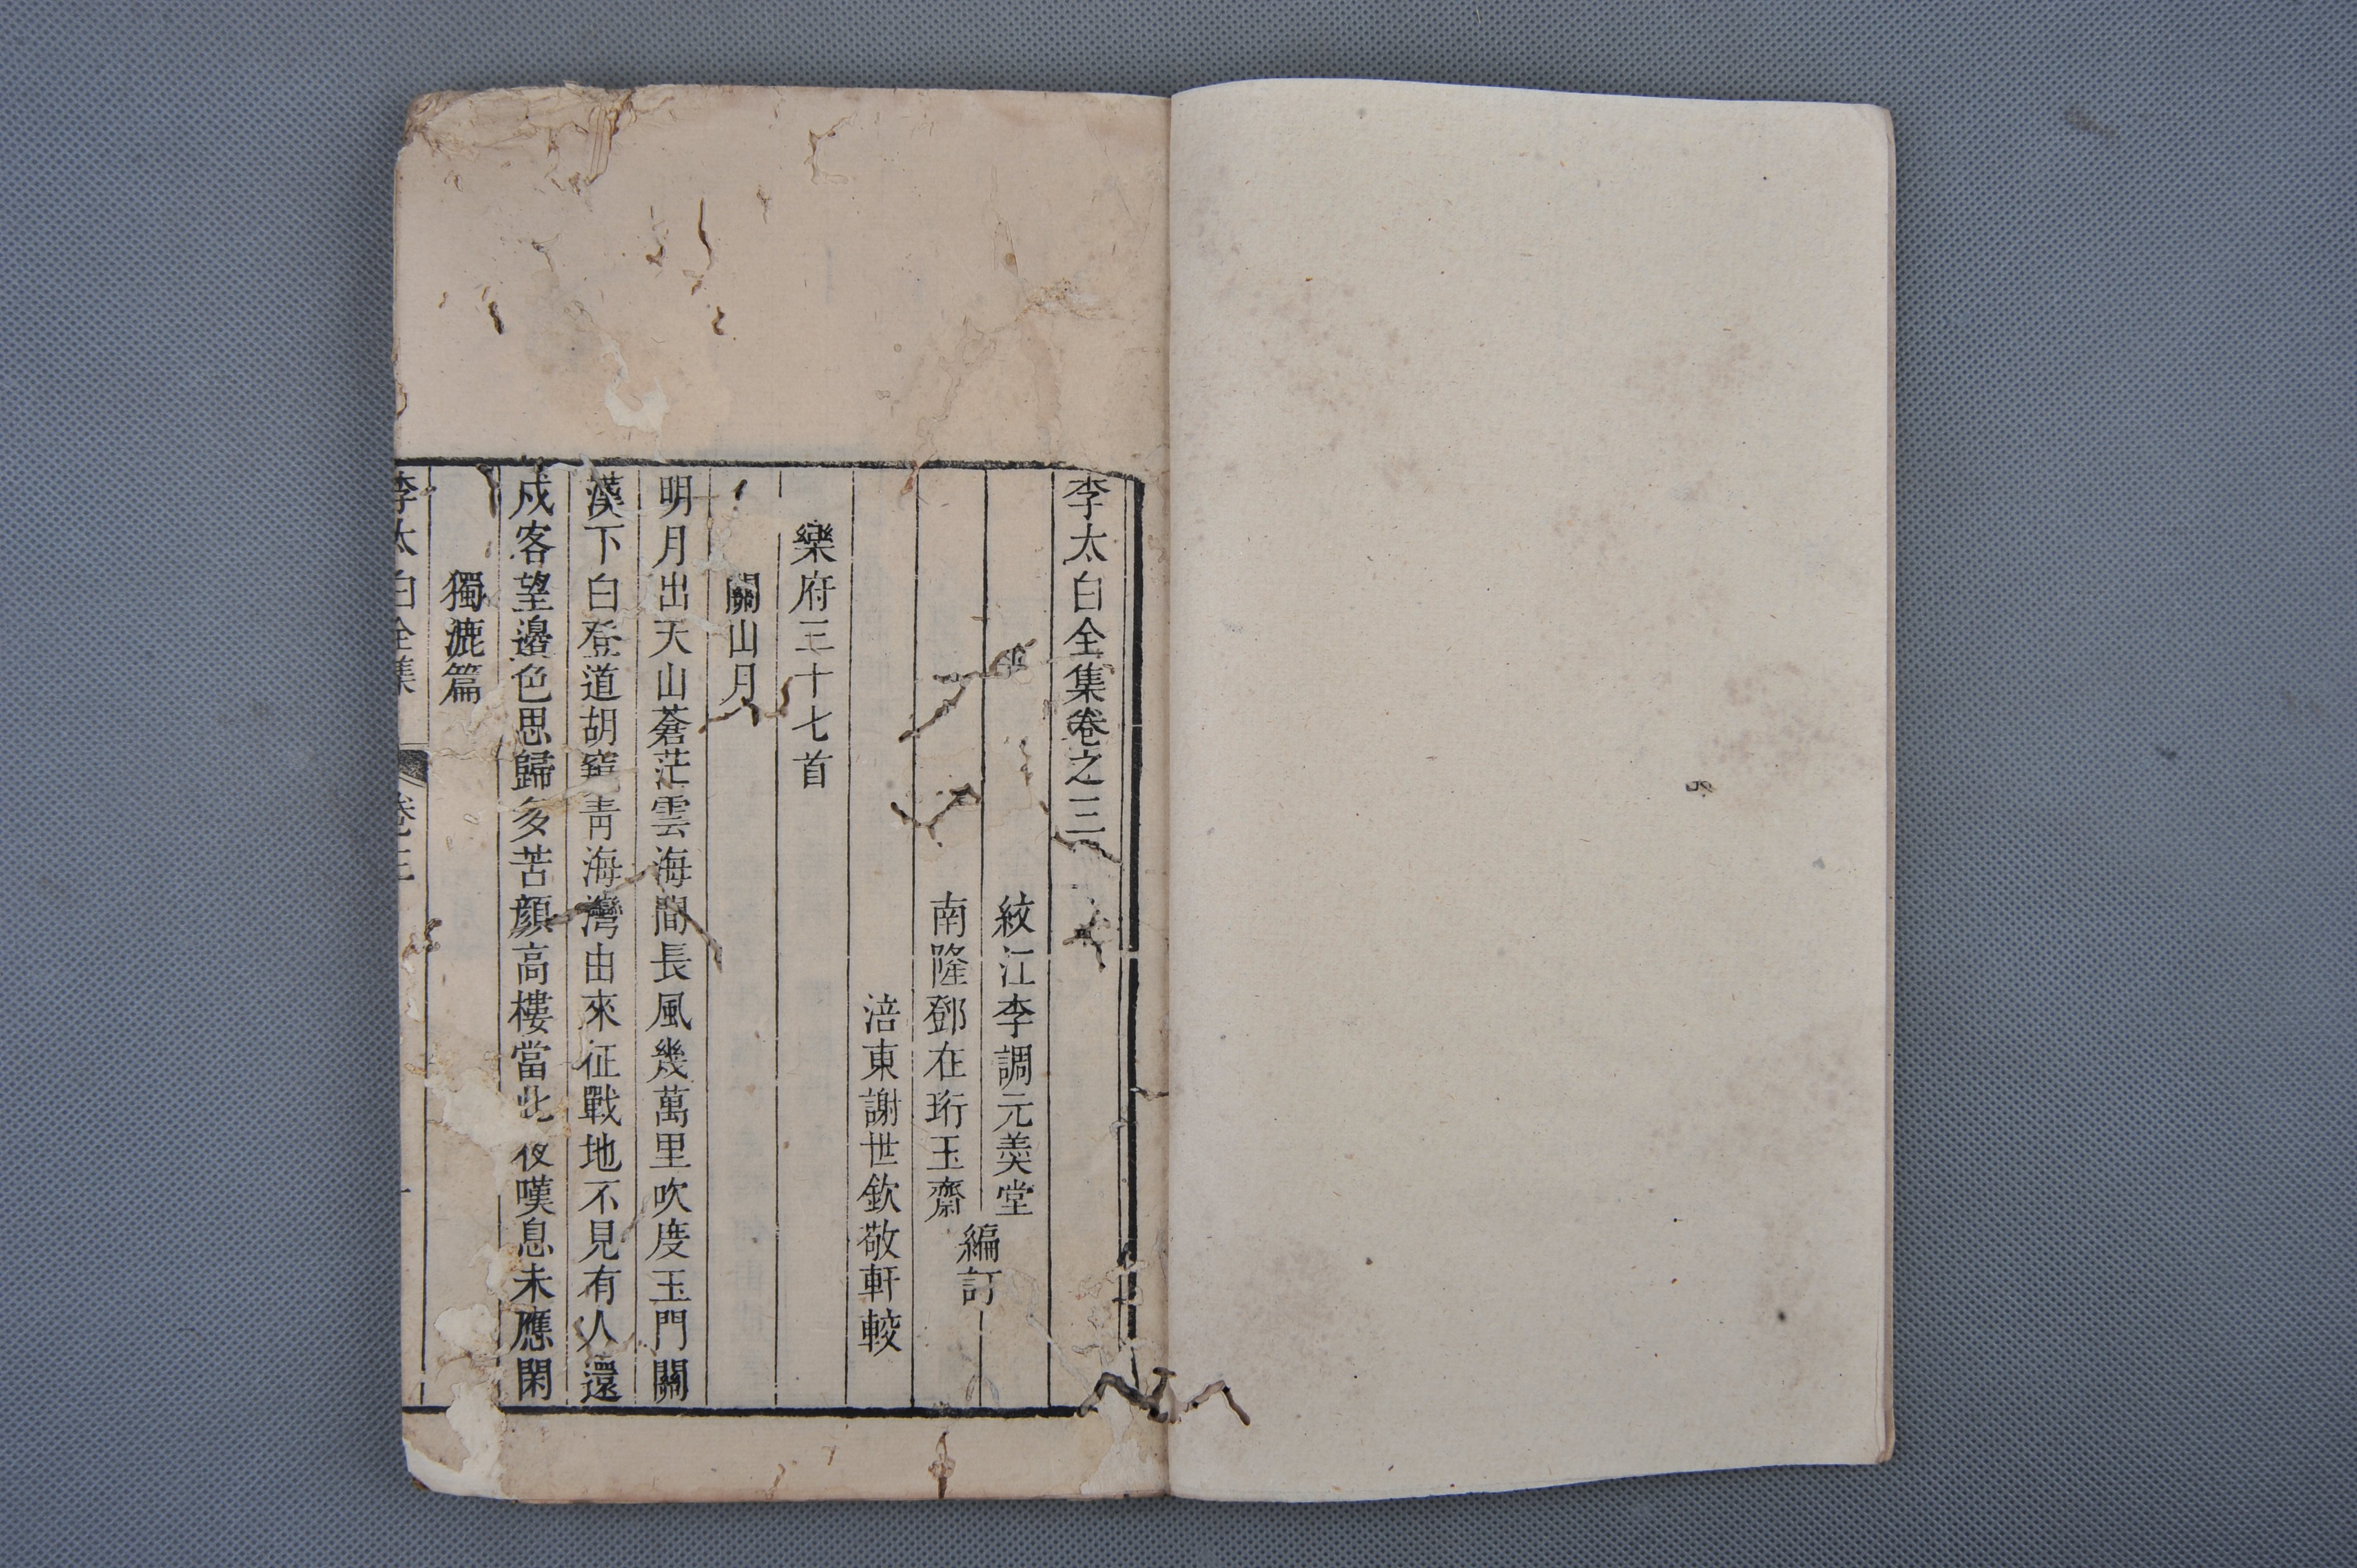 李太白全集卷之三
紋江李調元羹堂
南隆鄧在珩玉齋
編訂
涪東謝世欽敬軒較
樂府三十七首
關山月
明月出天山蒼茫雲海間長風幾萬里吹度玉門關
漢下白登道胡窺青海灣由來征戰地不見有人還
戍客望邊色思歸多苦顔高樓當此夜嘆息未應閑
獨漉篇
李太白全集 卷三 一